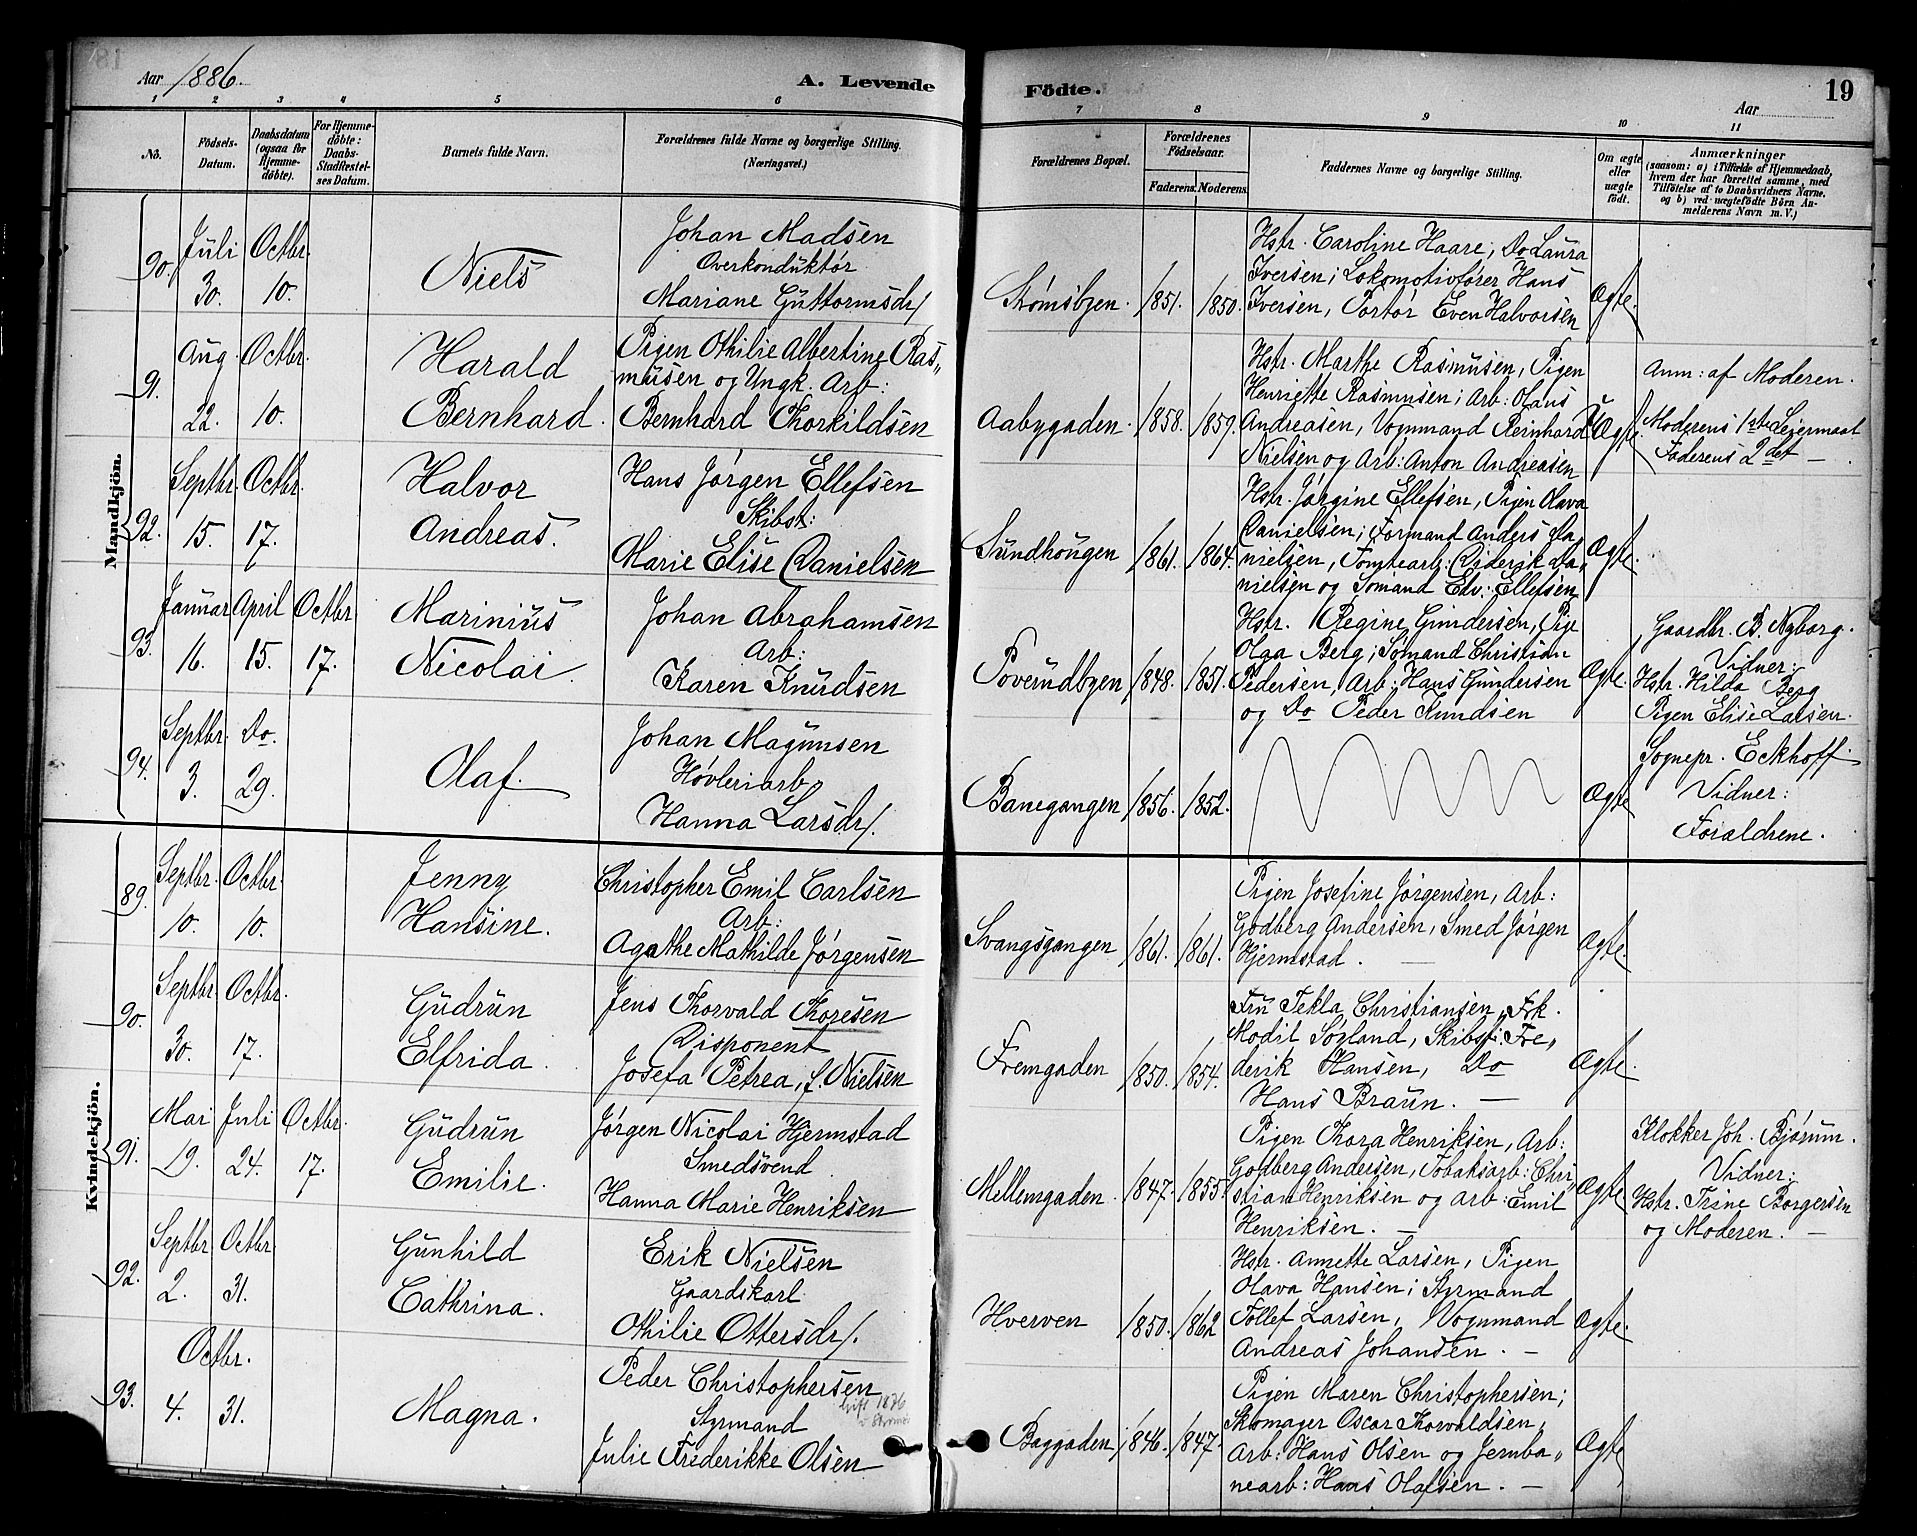 Aar 1886. A. Levende Födte. Aar 19
1 2 3 4 5 6 7 8 9 10 11
No.
Födsels-Datum.
Daabsdatum (ogsaa for Hjemmedöbte).
For Hjemmedöbte: Daabs-Stadfæstelses Datum.
Barnets fulde Navn.
Forældrenes fulde Navne og borgerlige Stilling. (Næringsvei.)
Forældrenes Bopæl.
Forældrenes Födselsaar.
Faderens. Moderens.
Faddernes Navne og borgerlige Stilling.
Om ægte eller uægte födt.
Anmærkninger
(saasom: a) i Tilfælde af Hjemmedaab,
hvem der har forrettet samme, med
Tilföielse af to Daabsvidners Navne.
og b) ved uægtefödte Börn Anmelderens Navn m. V.)
Mandkjön.
90.
Juli 30.
Octbr. 10.
Niels
Johan Madsen
Overkonduktør
Mariane Guttormsdr/
Strømsbyen.
1851. 1850.
Hstr. Caroline Haare, Do Laura
Iversen; Lokomotivfører Hans
Iversen, Portør Even Halvorsen
Ægte.
91.
Aug. 22.
Octbr. 10.
Harald
Bernhard.
Pigen Othilie Albertine Ras„
musen og Ungk. Arb:
Bernhard Thorkildsen
Aabygaden.
1858. 1859.
Hstr. Marthe Rasmusen, Pigen
Henriette Rasmusen; Arb: Olaus
Andreasen, Vognmand Reinhard
Nielsen og Arb: Anton Andreasen
U Ægte.
Anm: af Moderen.
Moderens 1ste Leiermaal
Faderens 2det —
92.
Septbr. 15.
Octbr. 17.
Halvor
Andreas.
Hans Jørgen Ellefsen
Skibst:
Marie Elise Danielsen
Sundhougen
1861. 1864.
Hstr. Jørgine Ellefsen, Pigen Olava
Danielsen; Formand Anders Da„
nielsen, Tomtearb: Diderik Da„
nielsen og Sømand Edv: Ellefsen
Ægte.
93.
Januar 16.
April 15.
Octbr 17.
Marinius
Nicolai.
Johan Abrahamsen
Arb:
Karen Knudsen
Poverudbyen
1848. 1851.
Hstr. Regine Gundersen, Pig
Olga Berg; Sømand Christian
Pedersen, Arb: Hans Gundersen
og Do Peder Knudsen
Ægte.
Gaardbr. B. Nyborg.
Vidner:
Hstr. Hilda Berg
Pigen Elise Larsen.
94.
Septbr. 3.
Do. 29.
Olaf.
Johan Magnusen
Høvleriarb.
Hanna Larsdr/.
Banegangen
1856. 1852.
Ægte
Sognepr. Eckhoff
Vidner:
Forældrene.
Kvindekjön.
89.
Septbr. 10.
Octbr. 10.
Jenny
Hansine.
Christopher Emil Carlsen
Arb:
Agathe Mathilde Jørgensen
Svangsgangen
1861. 1861.
Pigen Josefine Jørgensen, Arb:
Godberg Andersen, Smed Jørgen
Hjermstad. —
Ægte.
90.
Septbr. 30.
Octbr. 17.
Gudrun
Elfrida.
Jens Thorvald Thoresen
Disponent
Josefa Petrea, f. Nielsen
Fremgaden
1850. 1854.
Fru Tekla Christiansen, Frk.
Modil Søyland, Skibsf: Fre„
derik Hansen, Do
Hans Braun. —
Ægte.
91.
Mai 19.
Juli 24.
Octbr. 17.
Gudrun
Emilie.
Jørgen Nicolai Hjermstad
Smedsvend
Hanna Marie Henriksen
Mellemgaden.
1847. 1855.
Pigen Thora Henriksen, Arb:
Godberg Andersen, Tobaksarb: Chri„
stian Henriksen og Arb: Emil
Henriksen. —
Ægte
Klokker Joh. Bjørum.
Vidner:
Hstr. Trine Borgersen
og Moderen. —
92.
Septbr 2.
Octbr. 31.
Gunhild
Cathrina.
Erik Nielsen
Gaardskarl
Othilie Ottersdr/.
Hverven
1850. 1862
Hstr. Annette Larsen, Pigen
Olava Hansen; Styrmand
Tollef Larsen, Vognmand
Andreas Johansen. —
Ægte.
93.
Octbr.
4. 31.
Magna.
Peder Christophersen
Styrmand
Julie Frederikke Olsen
Baggaden
1846. 1847.
Pigen Maren Christophersen;
Skomager Oscar Thorvaldsen,
Arb: Hans Olsen og Jernba„
nearb: Hans Olafsen. —
Ægte